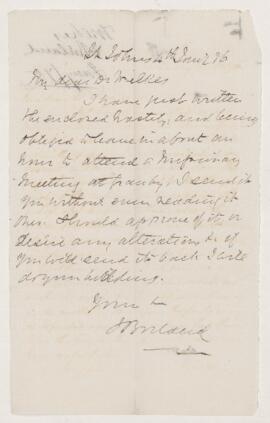 St Johns 4th Jany 76
My dear Dr Wilkes
I have just written
the enclosed hastily, and being
obliged to leave in about an
hour to attend a Missionary
Meeting at Granby, I send it
you without even reading it
over. Should approve of it, or
desire any alterations & if
you will send it back I will
do your bidding.
Yours